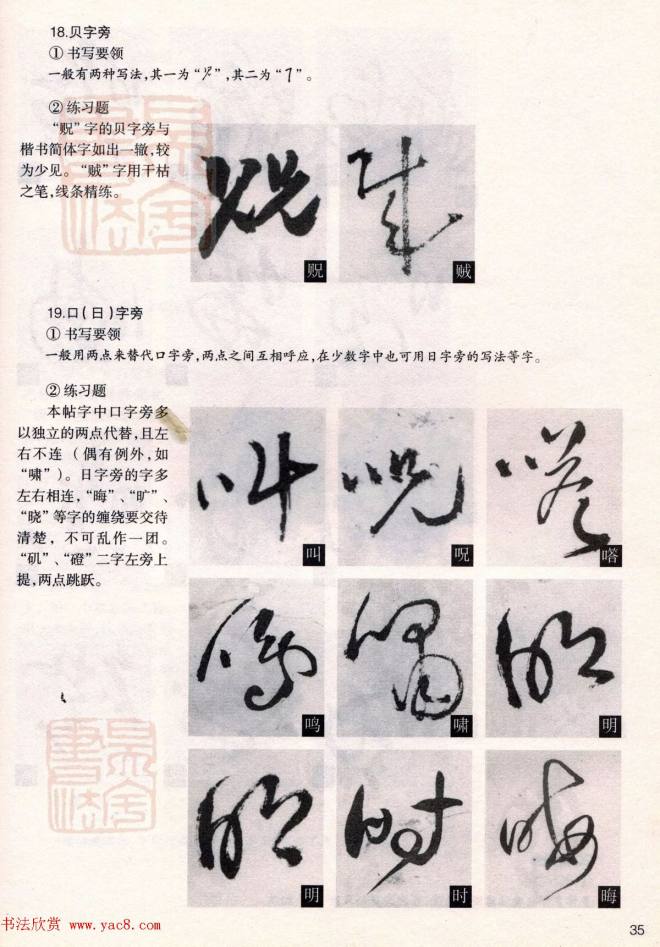 18.贝字旁
① 书写要领
一般有两种写法,其一为“”,其二为“”。
② 练习题
“贶”字的贝字旁与
楷书简体字如出一辙,较
为少见。“贼”字用干枯
之笔,线条精练。
贶
贼
19.口(日)字旁
① 书写要领
一般用两点来替代口字旁,两点之间互相呼应,在少数字中也可用日字旁的写法等字。
② 练习题
本帖字中口字旁多
以独立的两点代替,且左
右不连(偶有例外,如
“啸”)。日字旁的字多
左右相连,“晦”、“旷”、
“晓”等字的缠绕要交待
清楚,不可乱作一团。
“矶”、“磴”二字左旁上
提,两点跳跃。
叫
呪
嗒
鸣
啸
明
明
时
晦
书法欣赏 www.yac8.com
35